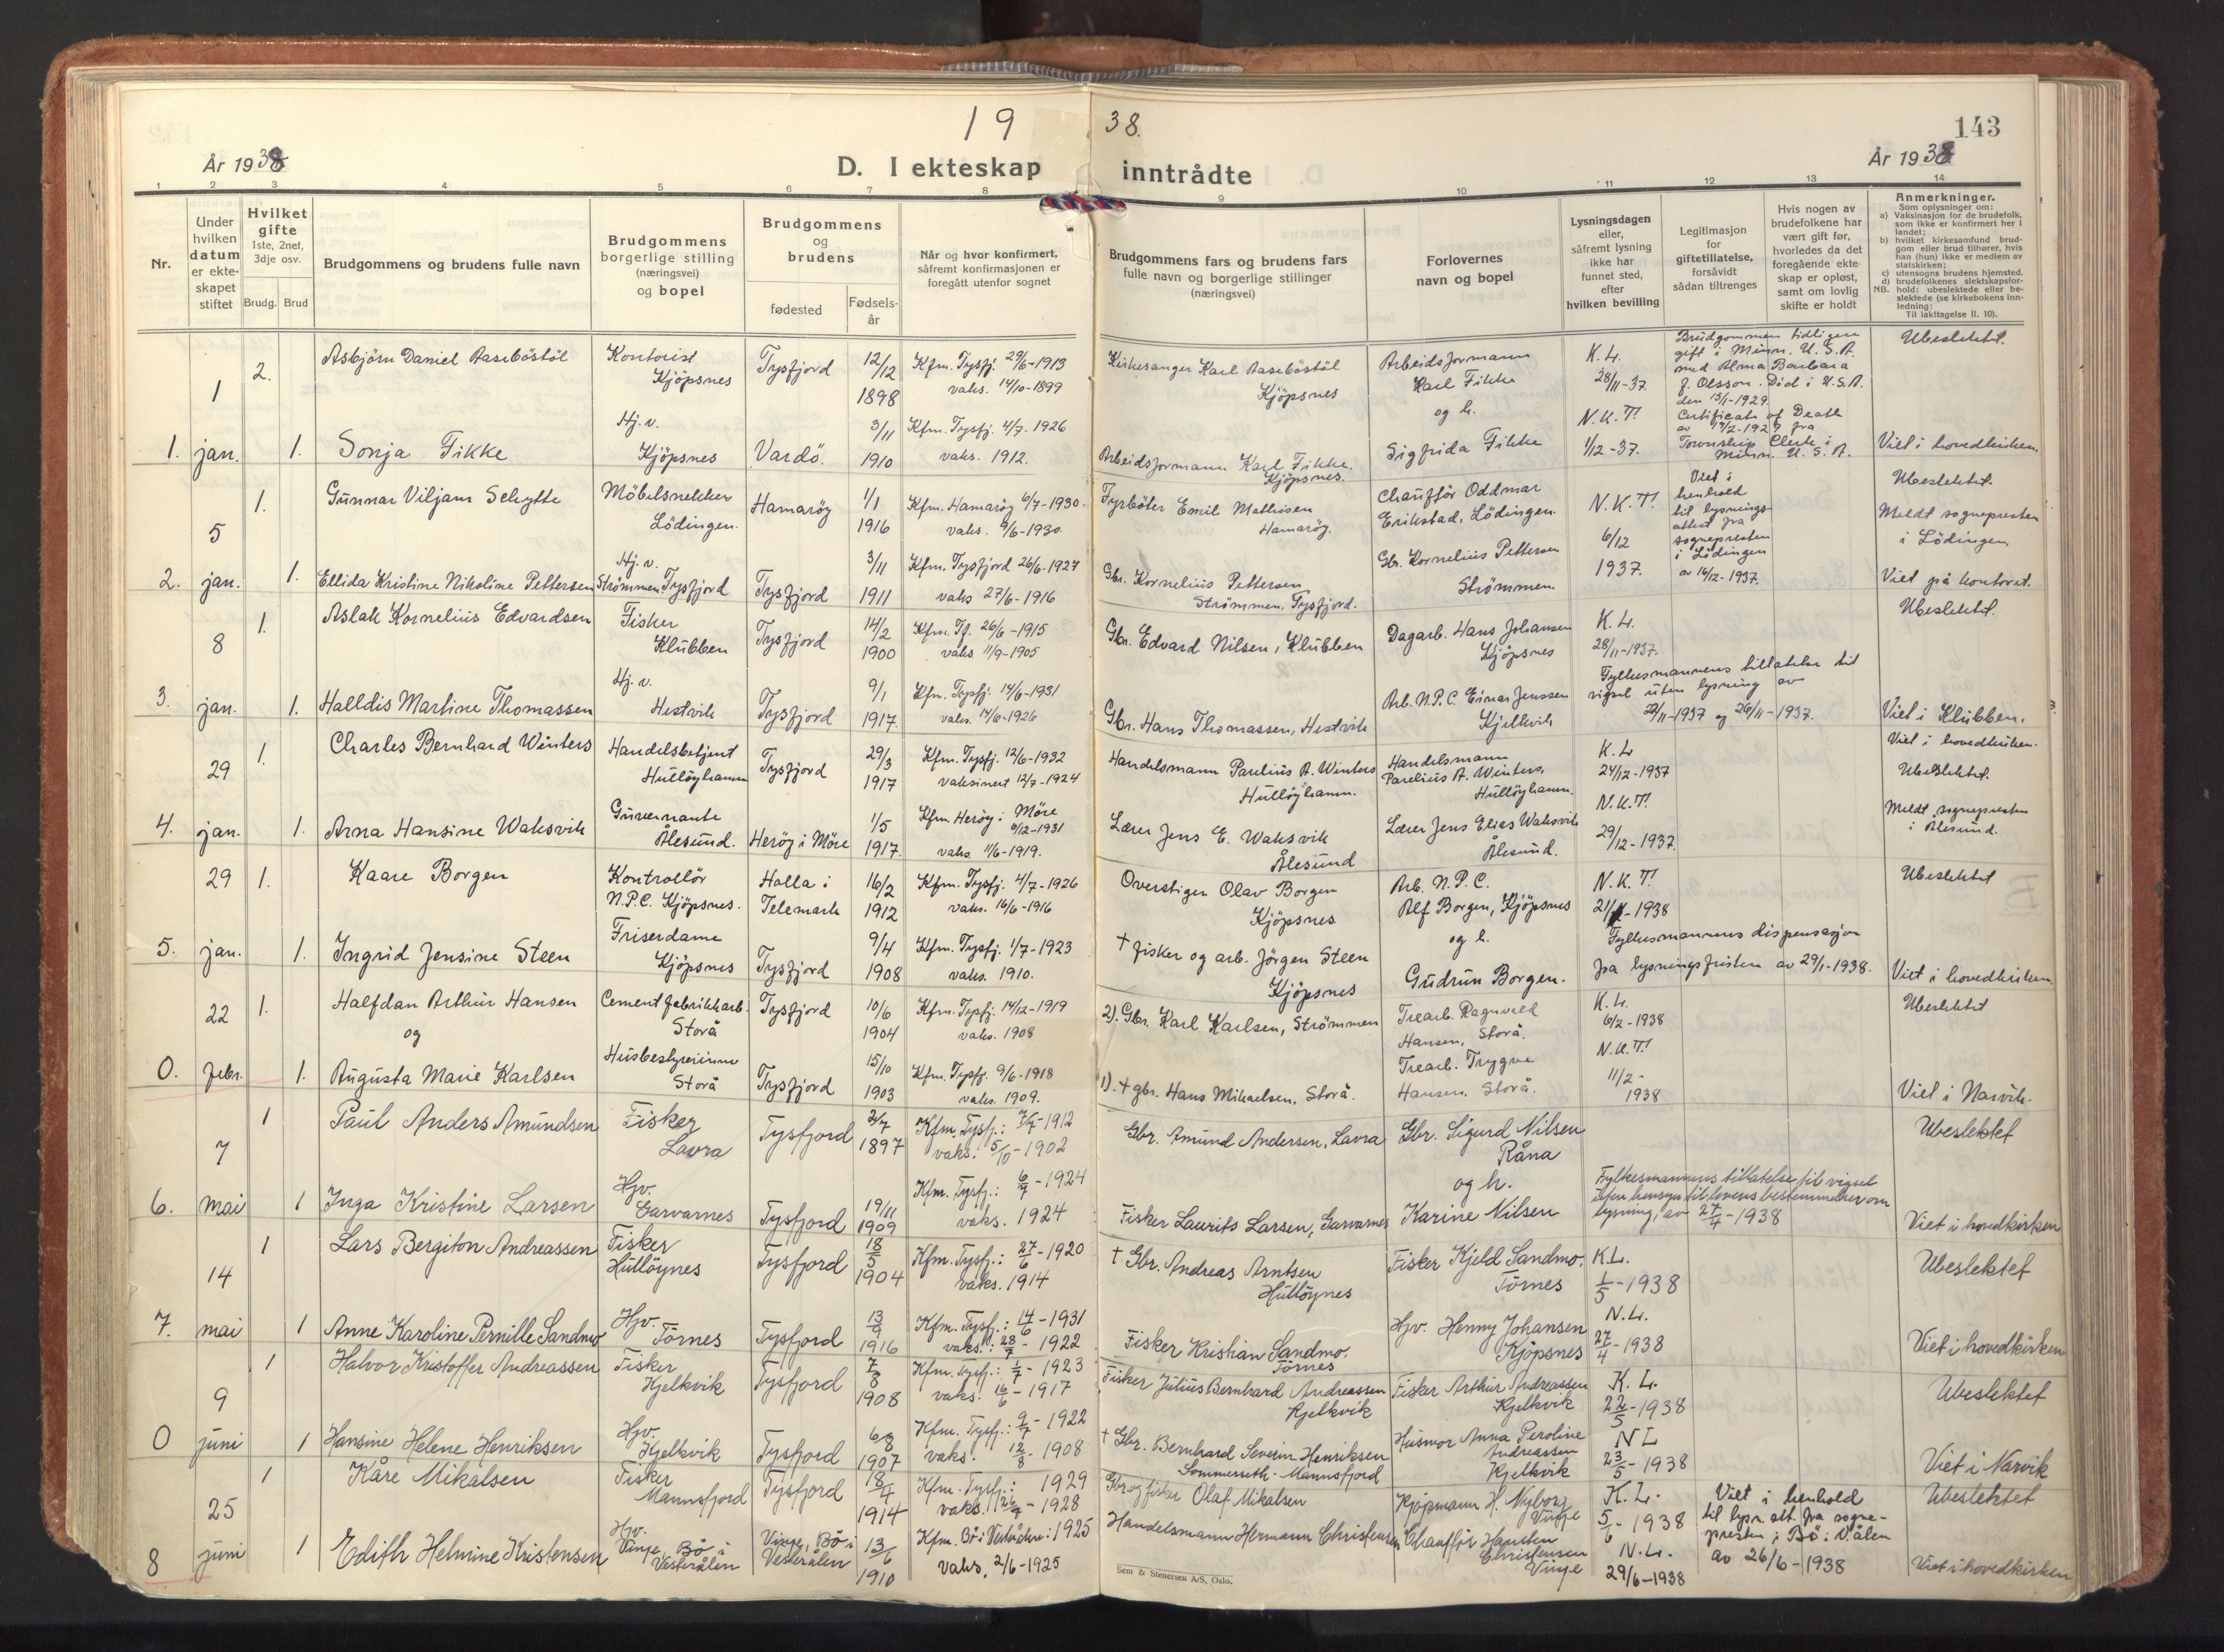 19 38.
143
År 1938
D. I ekteskap inntrådte
År 1938
1 2 3 4 5 6 7 8 9 10 11 12 13 14
Nr.
Under hvilken datum er ekteskapet stiftet
Hvilket gifte
1ste, 2net, 3dje osv.
Brudg. Brud
Brudgommens og brudens fulle navn
Brudgommens borgerlige stilling (næringsvei) og bopel
Brudgommens og brudens
fødested
Fødsels-år
Når og hvor konfirmert, såfremt konfirmasjonen er foregått utenfor sognet
Brudgommens fars og brudens fars fulle navn og borgerlige stillinger (næringsvei)
Forlovernes navn og bopel
Lysningsdagen eller, såfremt lysning ikke har funnet sted, efter hvilken bevilling
Legitimasjon for giftetillatelse, forsåvidt sådan tiltrenges
Hvis nogen av brudefolkene har vært gift før, hvorledes da det foregående ekteskap er opløst, samt om lovlig skifte er holdt
Anmerkninger.
Som oplysninger om:
a) Vaksinasjon for de brudefolk, som ikke er konfirmert her i landet;
b) hvilket kirkesamfund brudgom eller brud tilhører, hvis han (hun) ikke er medlem av statskirken;
c) utensogns brudens hjemsted.
d) brudefolkenes slektskapsforhold: ubeslektede eller beslektede (se kirkebokens innledning:
NB. Til iakttagelse II. 10).
1 2. Asbjörn Daniel Aaseböstöl Kontorist Kjöpsnes Tysfjord 12/12 1898 Kfm. Tysfj. 29/6-1913 vaks. 14/10-1899 Kirkesanger Karl Aaseböstöl Kjöpsnes Arbeidsformann Karl Fikke og h. K.L. 28/11-37. Brudgommen tidligere gift i Minn. U.S.A. med Alma Barbara J. Olsson. Död i U.S.A. den 13/1-1929. Ubeslektet.
1. jan. 1. Sonja Fikke Hj.v. Kjöpsnes Vardö. 3/11 1910 Kfm. Tysfj. 4/7-1926 vaks. 1912. Arbeidsformann Karl Fikke. Kjöpsnes. Sigfrida Fikke N.K.T. 1/12-37. Certificate of Death av 19/2-1929 fra Township Clerk i Minn. U.S.A. Viet i hovedkirken
5 1. Gunnar Viljam Schytte Möbelsnekker Lödingen. Hamaröy 1/1 1916 Kfm. Hamaröy 6/7-1930. vaks. 9/6-1930. Fyrböter Emil Mathisen Hamaröy. Chaufför Oddmar Erikstad, Lödingen. N.K.T. 6/12 1937. Viet i henhold til lysningsattest fra sognepresten i Lödingen av 16/12-1937. Ubeslektet. Meldt sognepresten i Lödingen.
2. jan. 1. Ellida Kristine Nikoline Pettersen Hj.v. Strömmen, Tysfjord Tysfjord 3/11 1911 Kfm. Tysfjord 26/6-1927 vaks 27/6-1916 Gbr. Kornelius Pettersen Strömmen, Tysfjord. Gbr. Kornelius Pettersen Strömmen. Viet på kontoret.
8 1. Aslak Kornelius Edvardsen Fisker Klubben Tysfjord 14/2 1900 Kfm. Tf. 26/6-1915 vaks 11/9-1905 Gbr. Edvard Nilsen, Klubben Dagarb. Hans Johansen Kjöpsnes K.L. 28/11-1937. Ubeslektet.
3. jan. 1. Halldis Martine Thomassen Hj.v. Hestvik Tysfjord 9/1 1917. Kfm. Tysfj. 14/6-1931 vaks. 14/6-1926 Gbr. Hans Thomassen, Hestvik Arb. N.P.C. Einar Jenssen Kjelkvik Fylkesmannens tillatelse til vigsel uten lysning av 23/11-1937 og 26/11-1937. Viet i Klubben.
29 1. Charles Bernhard Winters Handelsbetjent Hullöyhamn Tysfjord 29/3 1917 Kfm. Tysfj. 12/6-1932 vaksinert 12/7-1924 Handelsmann Parelius A. Winters Hullöyhamn. Handelsmann Parelius A. Winters, Hullöyhamn. K.L 24/12-1937 Viet i hovedkirken. Ubeslektet.
4. jan. 1. Arna Hansine Waksvik Guvernante Ålesund. Heröy i Möre 1/5 1917. Kfm. Heröy i Möre 6/12-1931 vaks. 11/6-1919. Lærer Jens E. Waksvik Ålesund Lærer Jens Elias Waksvik Ålesund. N.K.T. 29/12-1937. Meldt sognepresten i Ålesund.
29 1. Kaare Borgen Kontrollör N.P.C. Kjöpsnes. Holla i Telemark 16/2 1912 Kfm. Tysfj. 4/7-1926 vaks. 16/6-1916 Overstiger Olav Borgen Kjöpsnes Arb. N.P.C. Alf Borgen, Kjöpsnes og h. N.K.T. 21/1-1938 Ubeslektet
5. jan. 1. Ingrid Jensine Steen Friserdame Kjöpsnes Tysfjord 9/4 1908 Kfm. Tysfj. 1/7-1923 vaks. 1910. † Fisker og arb. Jörgen Steen Kjöpsnes Gudrun Borgen. Fylkesmannens dispensasjon fra lysningsfristen av 29/1-1938. Viet i hovedkirken.
22 1. Halfdan Arthur Hansen og Cementfabrikkarb. Storå Tysfjord 10/6 1904 Kfm. Tysfj. 14/12-1919 vaks. 1908 2). Gbr. Karl Karlsen, Strömmen Trearb. Ragnvald Hansen, Storå. K.L. 6/2-1938 Ubeslektet
0. febr. 1. Augusta Marie Karlsen Husbestyrerinne Storå Tysfjord 15/10 1903 Kfm. Tysfj. 9/6-1918 vaks. 1909. 1). † gbr. Hans Mikaelsen, Storå. Trearb. Trygve Hansen, Storå. N.K.T. 11/2-1938 Viet i Narvik.
7 1 Paul Anders Amundsen Fisker Lavra Tysfjord 2/7 1897 Kfm. Tysfj.: 7/7-1912 vaks.: 5/10-1902 Gbr. Amund Andersen, Lavra Gbr. Sigurd Nilsen Råna og h. Ubeslektet
6. mai 1 Inga Kristine Larsen Hjv. Garvarnes Tysfjord 19/11 1909 Kfm. Tysfj.: 6/7-1924 vaks. 1924 Fisker Laurits Larsen, Garvarnes Karine Nilsen Fylkesmannens tillatelse til vigsel uten hensyn til lovens bestemmelser om lysning, av 27/4-1938 Viet i hovedkirken
14 1 Lars Bergiton Andreassen Fisker Hulløynes Tysfjord 18/5 1904 Kfm. Tysfj.: 27/6-1920 vaks. 1914 † Gbr. Andreas Arntsen Hulløynes Fisker Kjeld Sandmo. Tørnes K.L. 1/5-1938 Ubeslektet
7. mai 1 Anne Karoline Pernille Sandmo Hjv. Tørnes Tysfjord 13/9 1916 Kfm. Tysfj.: 14/6-1931 vaks.: 28/7-1922 Fisker Kristian Sandmo. Tørnes Hjv. Henny Johansen Kjøpsnes N.L. 27/4-1938 Viet i hovedkirken
9 1 Halvor Kristoffer Andreassen Fisker Kjelkvik Tysfjord 7/8 1908 Kfm. Tysfj.: 1/7-1923 vaks. 16/6-1917 Fisker Julius Bernhard Andreassen Kjelkvik Fisker Arthur Andreassen Kjelkvik K.L. 22/5-1938 Ubeslektet
0 juni 1 Hansine Helene Henriksen Hjv. Kjelkvik Tysfjord 6/8 1907 Kfm. Tysfj.: 9/7-1922 vaks. 12/8-1908 † Gbr. Bernhard Severin Henriksen Sommerseth-Mannsfjord Husmor Anna Peroline Andreassen Kjelkvik NL 23/5-1938 Viet i Narvik
25 1 Kåre Mikalsen Fisker Mannsfjord Tysfjord 18/4 1914 Kfm. Tysfj.: 1929 vaks. 1928 Gbr og fisker Olaf Mikalsen Kjøpmann H. Nyborg Vinje K.L. 5/6-1938 Viet i henhold til lysn. att. fra sognepresten i Bø i V.ålen av 26/6-1938 Ubeslektet
8 juni 1 Edith Helmine Kristensen Hjv. Vinje, Bø i Vesterålen Vinje, Bø i Vesterålen 13/6 1910 Kfm. Bø i Vesterålen: 1925 Vaks. 2/6-1925 Handelsmann Hermann Christensen Chauffør Christensen Vinje N.L. 29/6-1938 Viet i hovedkirken
Sem & Stenersen A/S, Oslo.